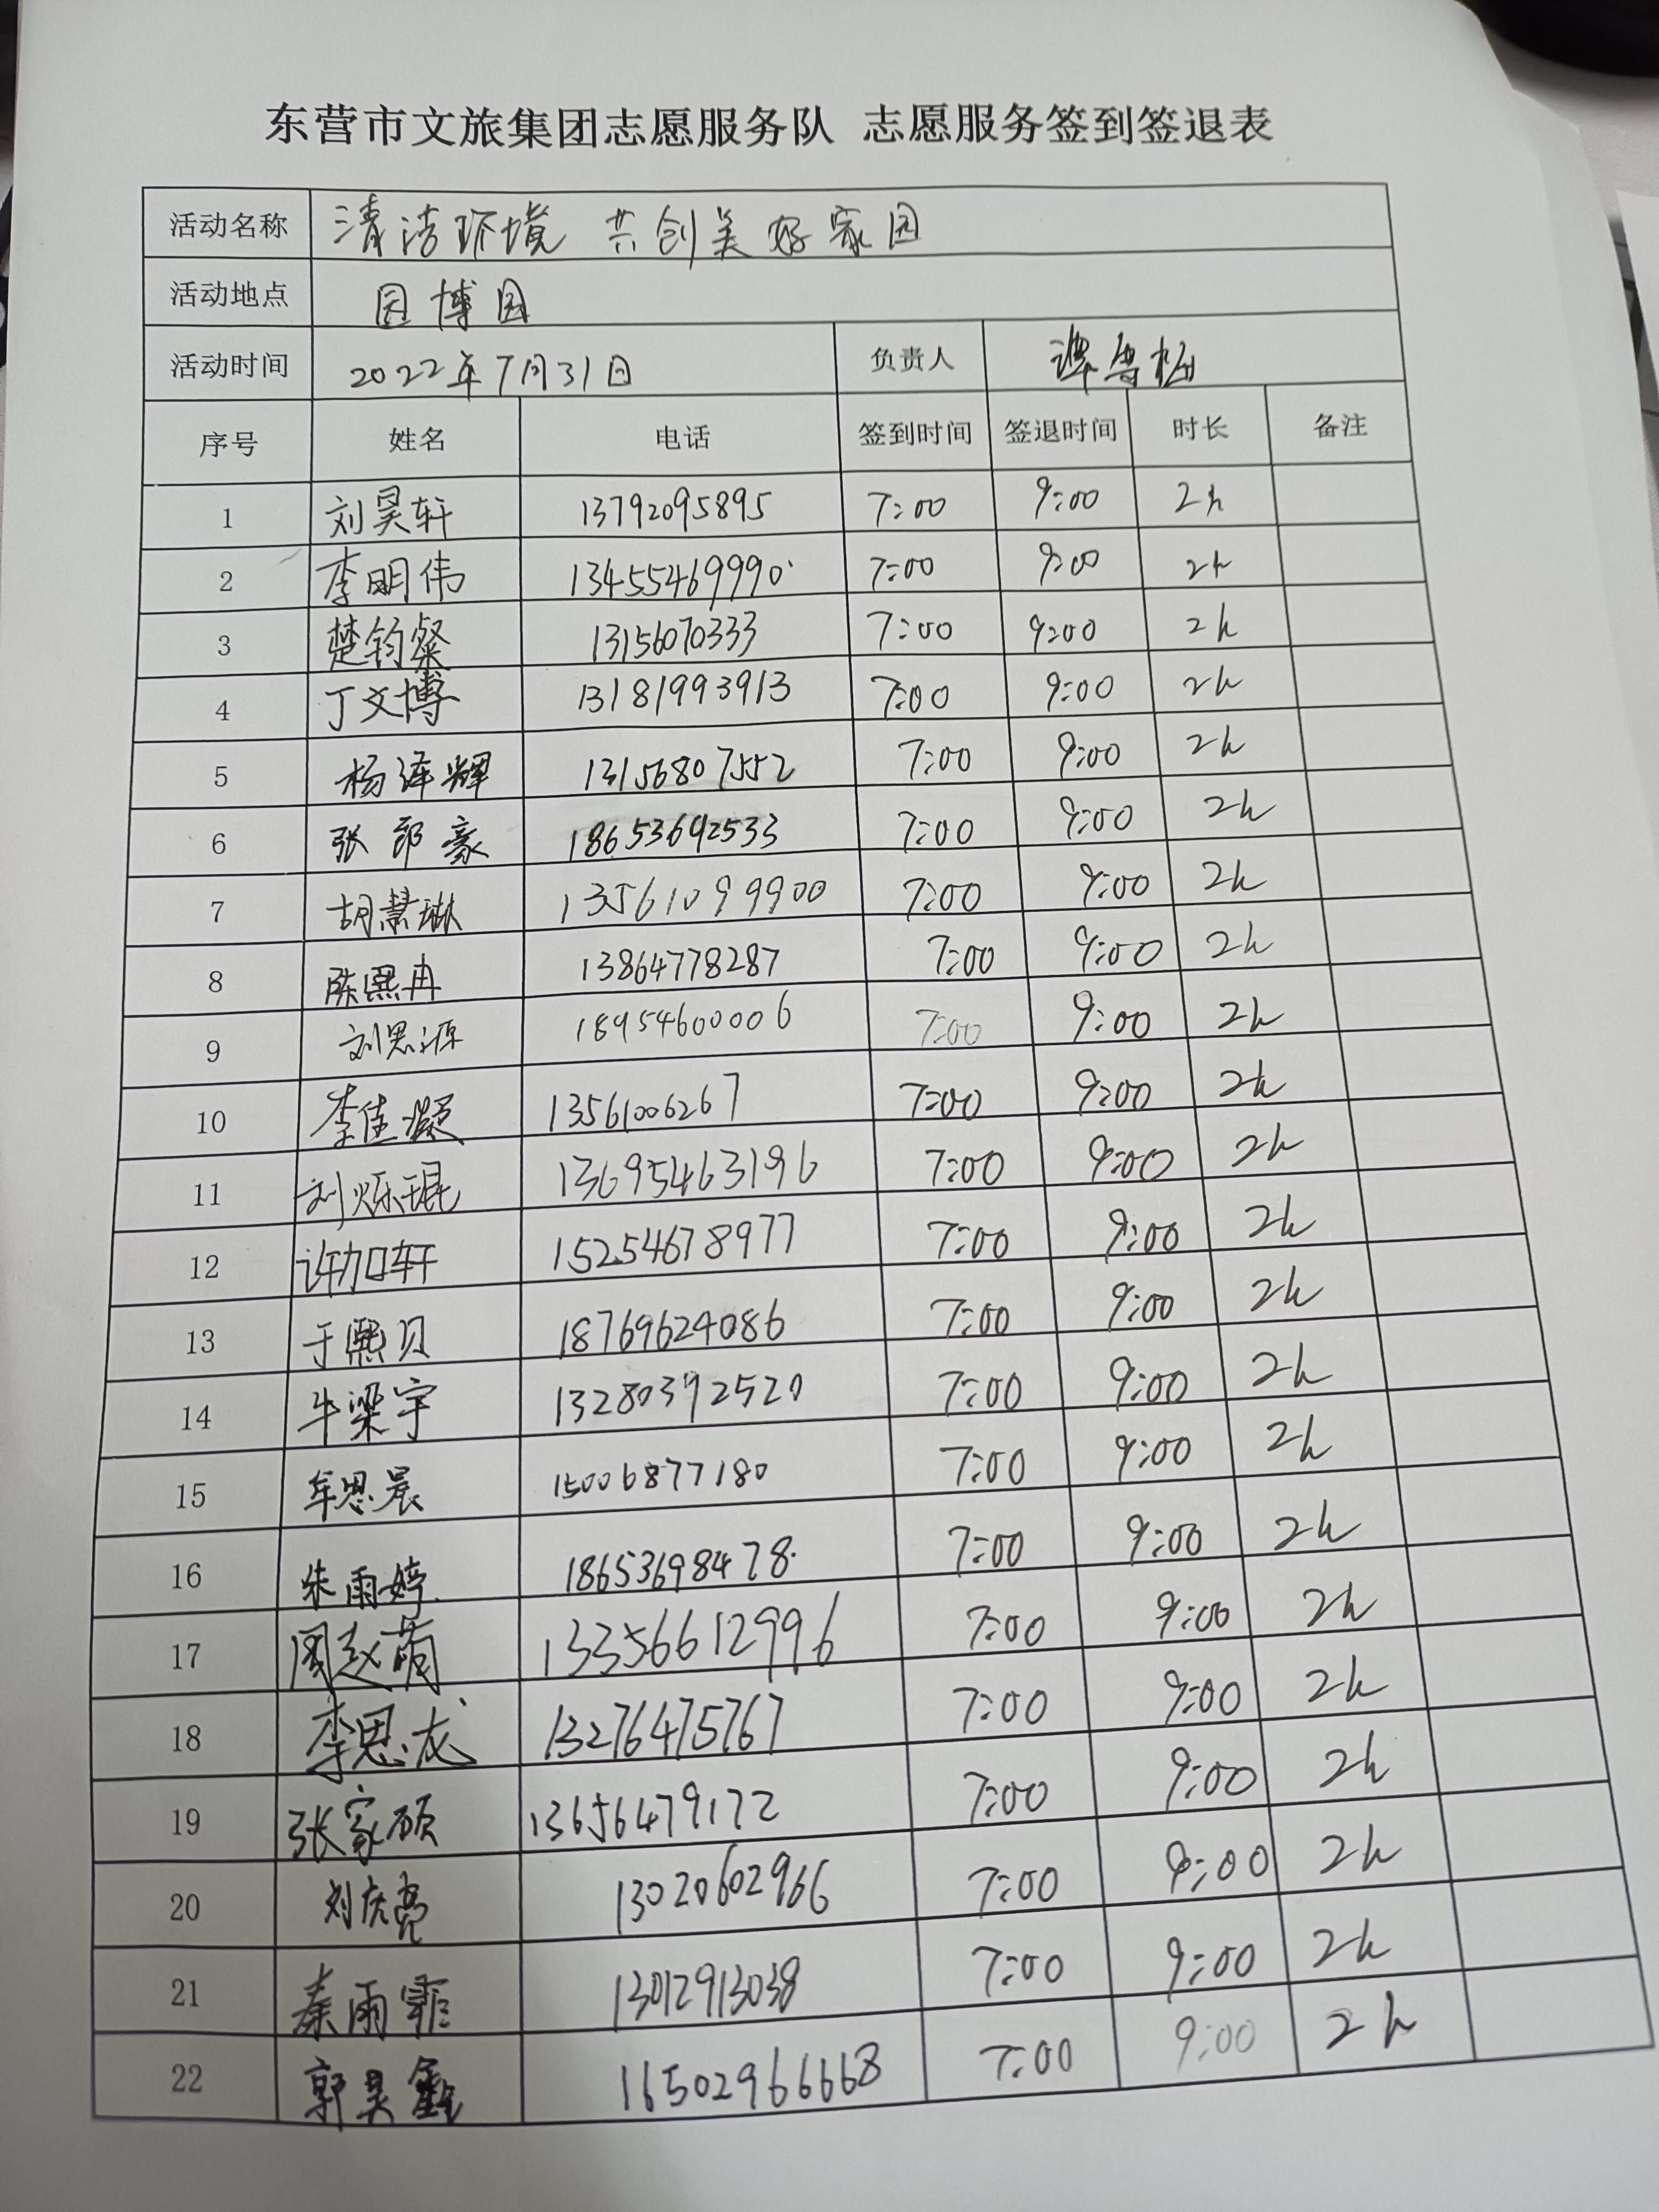 东营市文旅集团志愿服务队 志愿服务签到签退表
活动名称 清洁环境 共创美好家园
活动地点 园博园
活动时间 2022年7月31日 负责人
序号 姓名 电话 签到时间 签退时间 时长 备注
1 刘昊轩 13792095895 7:00 9:00 2h
2 李明伟 13455469990 7:00 9:00 2h
3 楚钧粲 13156070333 7:00 9:00 2h
4 丁文博 13181993913 7:00 9:00 2h
5 杨泽辉 13156807552 7:00 9:00 2h
6 张 豪 18653692533 7:00 9:00 2h
7 胡慧琳 13561099900 7:00 9:00 2h
8 陈熙冉 13864778287 7:00 9:00 2h
9 刘思源 18954600006 7:00 9:00 2h
10 李佳凝 13561006267 7:00 9:00 2h
11 刘烁琨 13695463196 7:00 9:00 2h
12 许加轩 15254678977 7:00 9:00 2h
13 于熙贝 18769624086 7:00 9:00 2h
14 牛梁宇 13280392520 7:00 9:00 2h
15 牟思晨 15006877180 7:00 9:00 2h
16 朱雨婷 18653698478 7:00 9:00 2h
17 周赵萌 13356612996 7:00 9:00 2h
18 李思成 13276475767 7:00 9:00 2h
19 张家硕 13656479172 7:00 9:00 2h
20 刘庆亮 13020602966 7:00 9:00 2h
21 秦雨霏 13012913038 7:00 9:00 2h
22 郭昊鑫 16502966668 7:00 9:00 2h